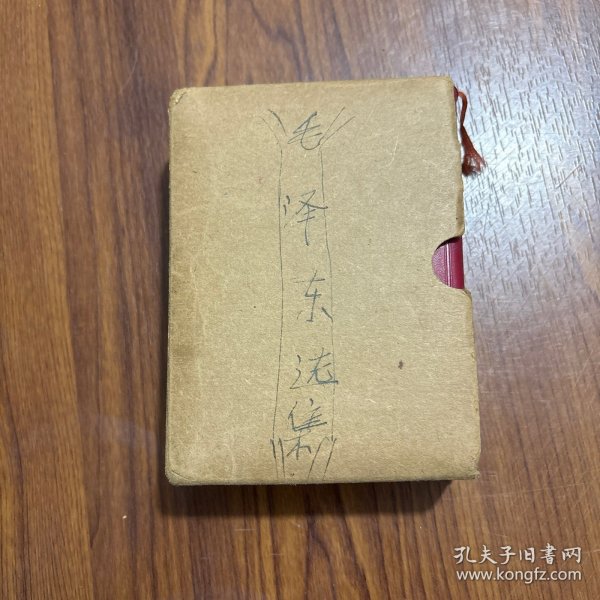 毛泽东选集
孔夫子旧書网
www.kongfz.com